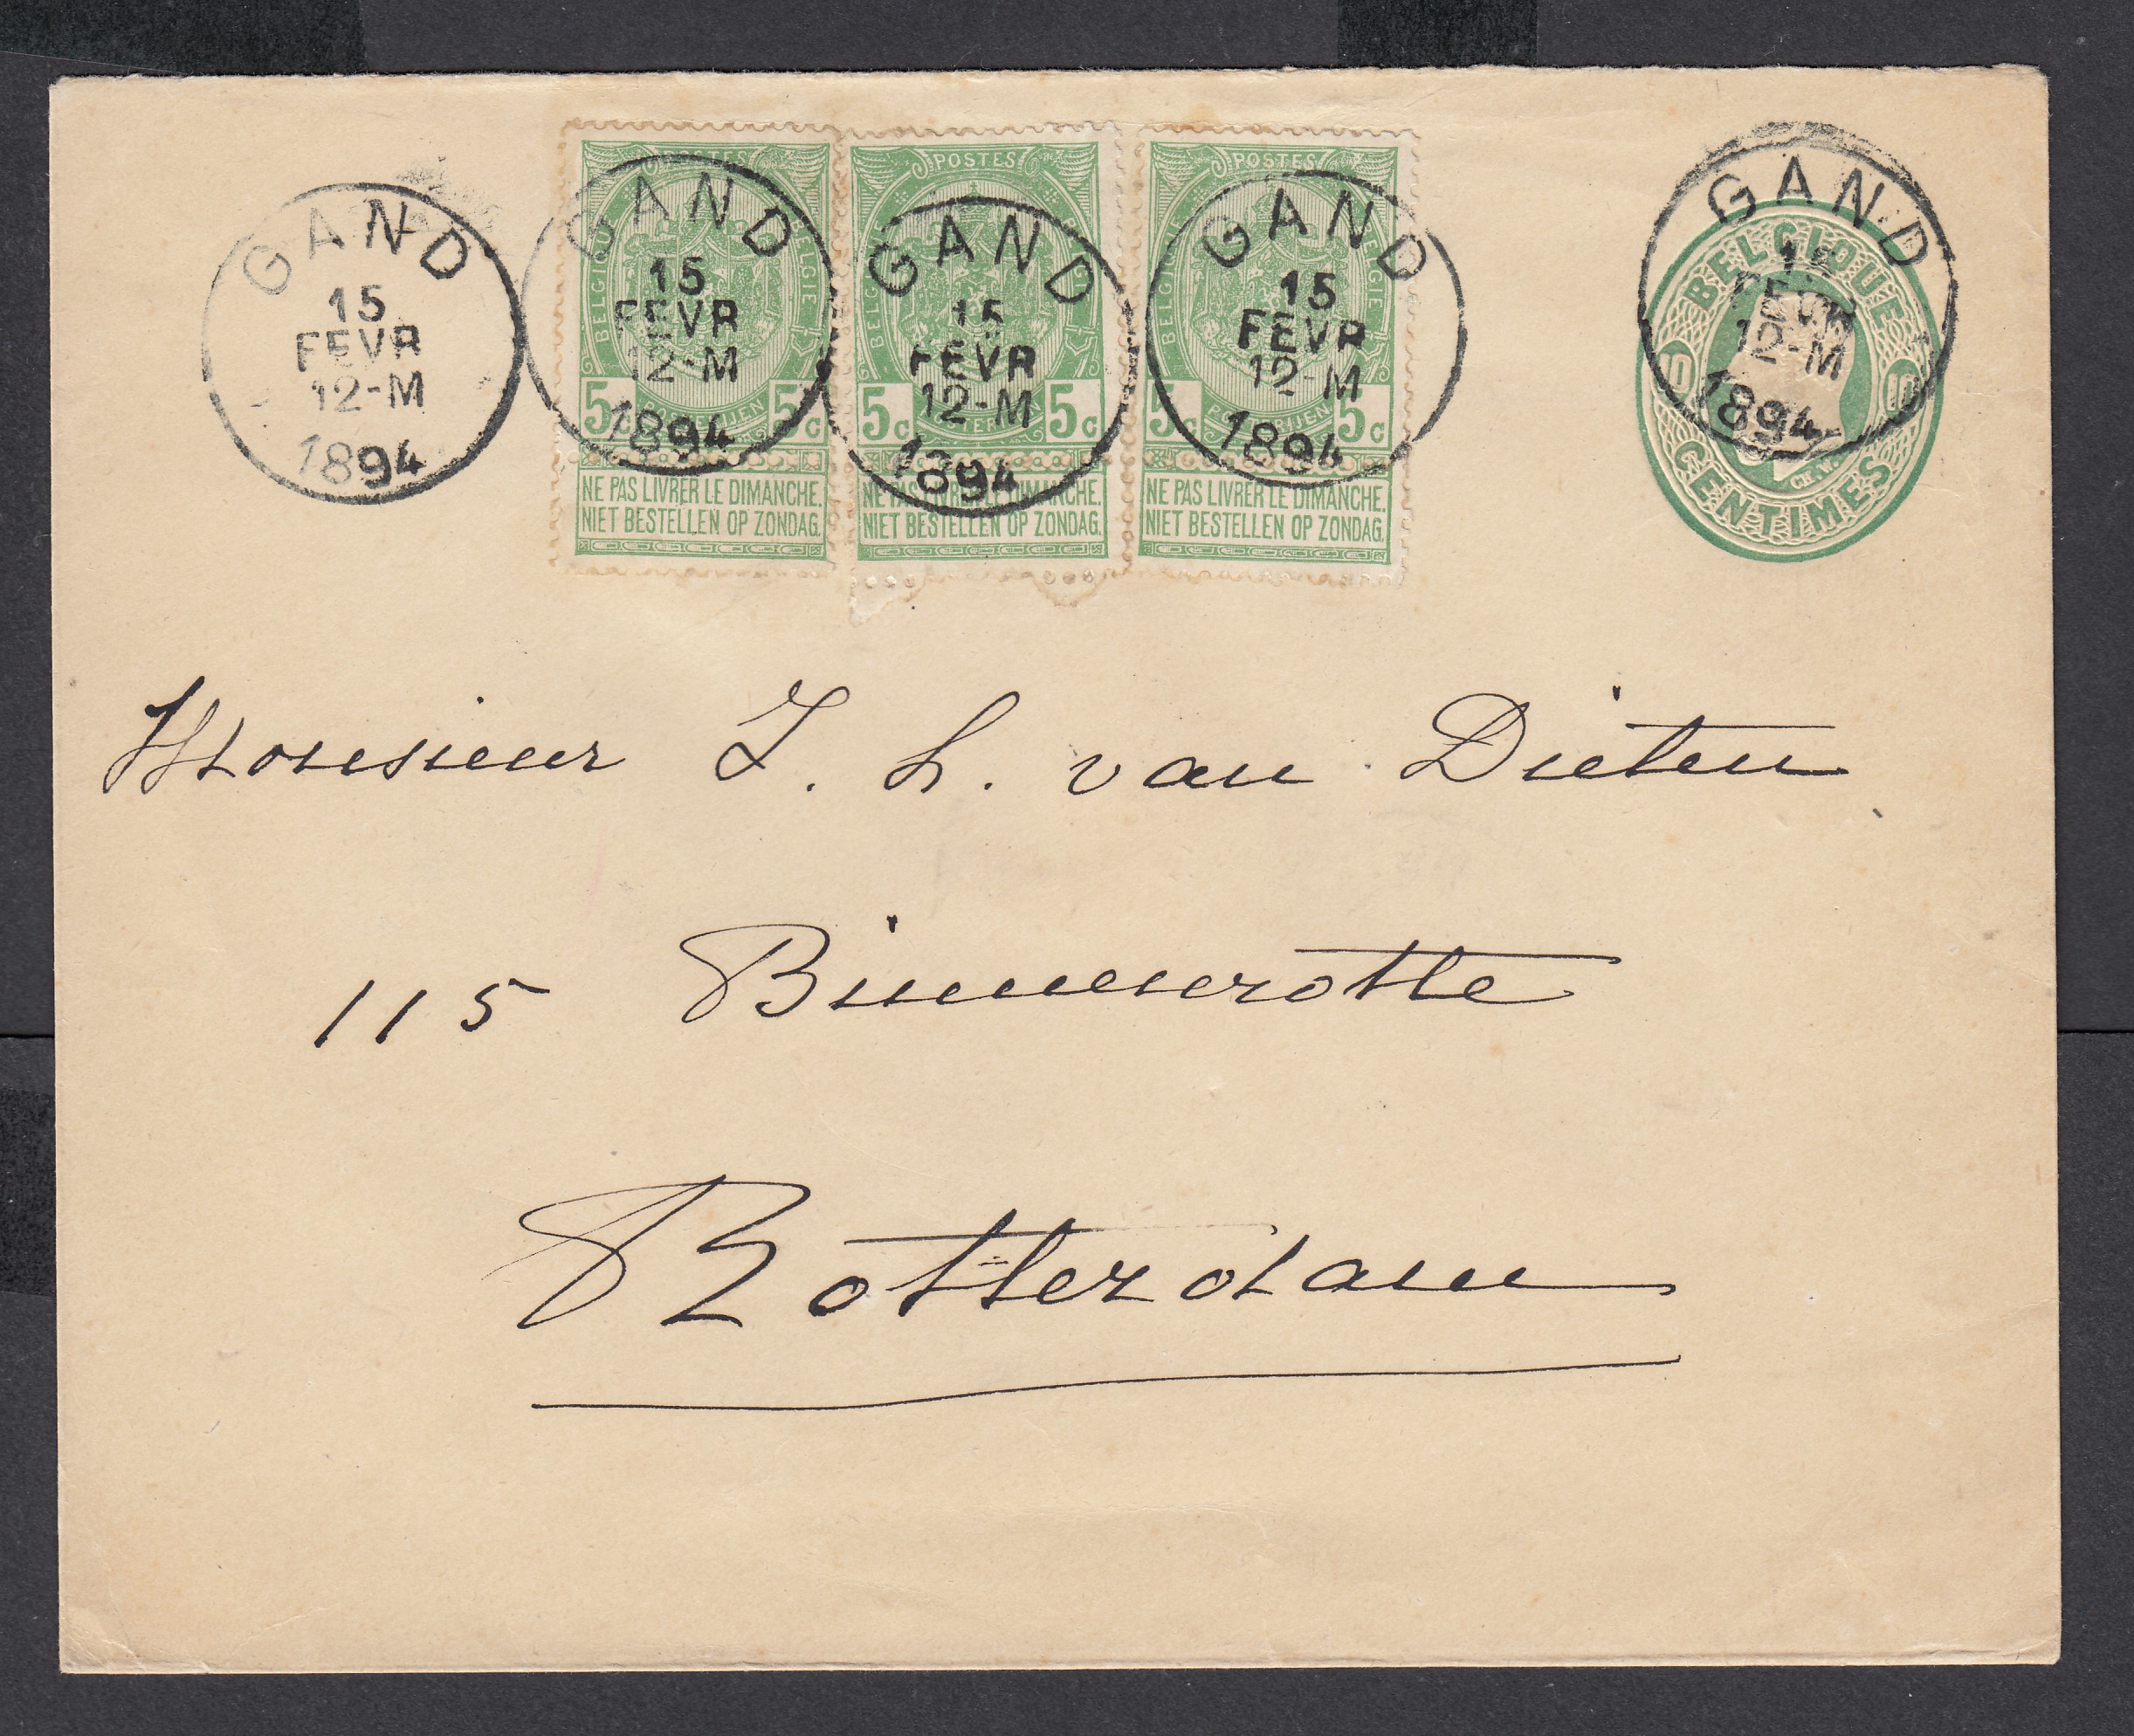 GAND
15
FEVR
12-M
1894
GAND
15
FEVR
12-M
1894
GAND
15
FEVR
12-M
1894
GAND
15
FEVR
12-M
1894
GAND
FEVR
12-M
1894
POSTES
BELGIQUE
BELGIE
5c 5c
NE PAS LIVRER LE DIMANCHE.
NIET BESTELLEN OP ZONDAG.
POSTES
5c 5c
NE PAS LIVRER LE DIMANCHE.
NIET BESTELLEN OP ZONDAG.
POSTES
BELGIE
5c 5c
NE PAS LIVRER LE DIMANCHE.
NIET BESTELLEN OP ZONDAG.
BELGIQUE
10 10
CENTIMES
Monsieur J. L. van Dieten
115 Binnenrotte
Rotterdam